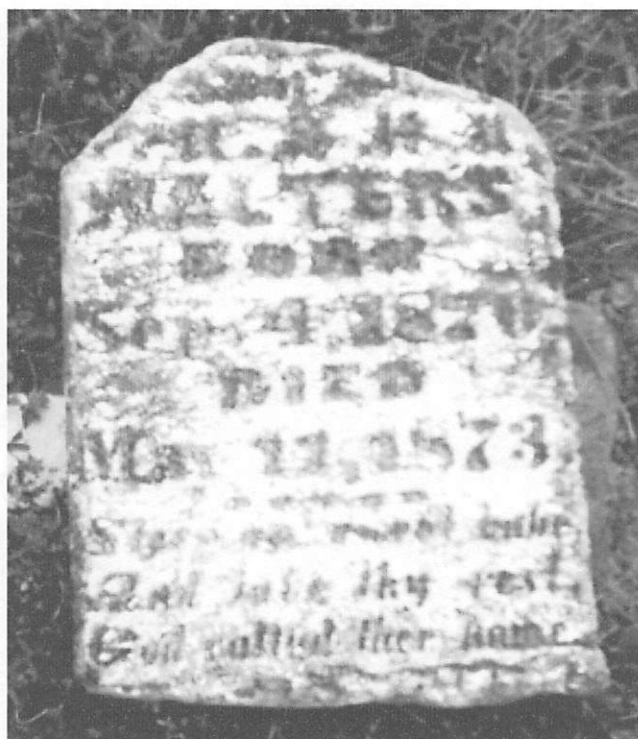 WALTERS
BORN
Sep. 4, 187
DIED
11, 1873
Sleep on sweet babe
And take thy rest,
God called thee home